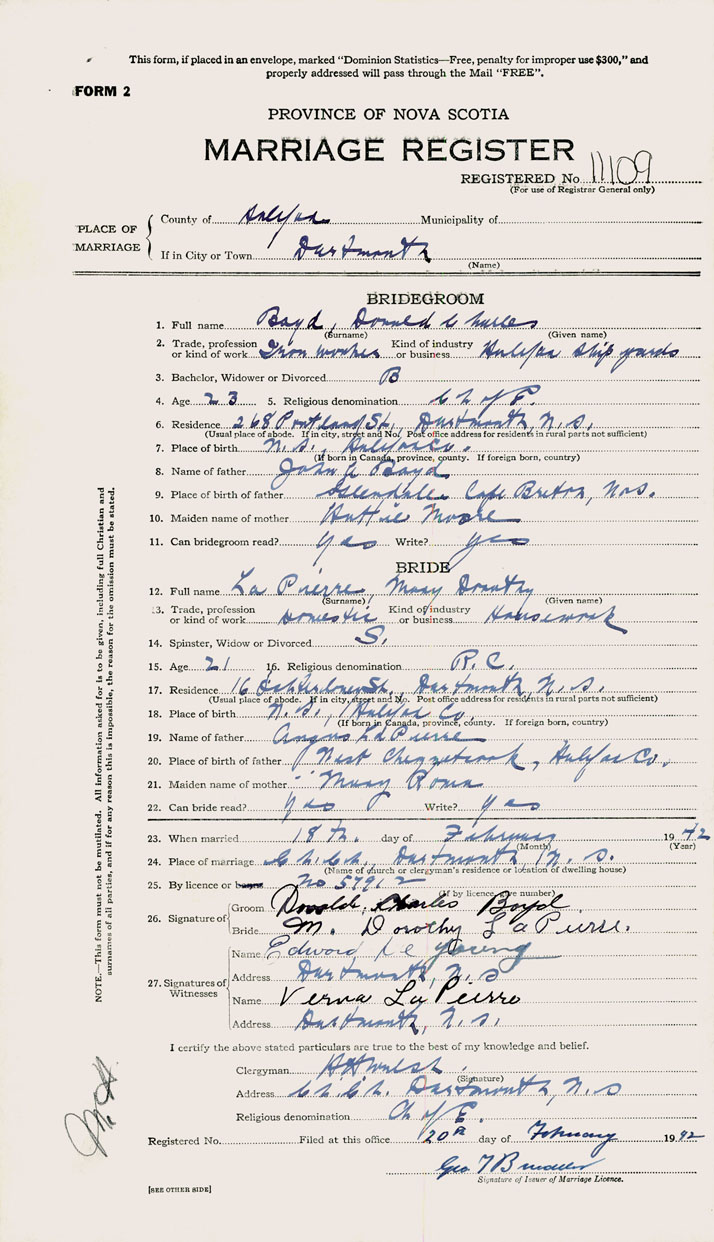 This form, if placed in an envelope, marked "Dominion Statistics—Free, penalty for improper use $300," and
properly addressed will pass through the Mail "FREE".
FORM 2
PROVINCE OF NOVA SCOTIA
MARRIAGE REGISTER
REGISTERED No. 11109
(For use of Registrar General only)
PLACE OF MARRIAGE
County of Halifax Municipality of
If in City or Town Dartmouth
(Name)
BRIDEGROOM
1. Full name Boyd, Donald Charles
(Surname) (Given name)
2. Trade, profession or kind of work Iron worker Kind of industry or business Halifax Ship yards
3. Bachelor, Widower or Divorced B
4. Age 23 5. Religious denomination Ch of E.
6. Residence 268 Portland St., Dartmouth, N.S.
(Usual place of abode. If in city, street and No. Post office address for residents in rural parts not sufficient)
7. Place of birth N.S., Halifax Co.
(If born in Canada, province, county. If foreign born, country)
8. Name of father John A Boyd
9. Place of birth of father Glendale, Cape Breton, N.S.
10. Maiden name of mother Hattie Moore
11. Can bridegroom read? yes Write? yes
BRIDE
12. Full name La Pierre, Mary Dorothy
(Surname) (Given name)
13. Trade, profession or kind of work Domestic Kind of industry or business Housework
14. Spinster, Widow or Divorced S.
15. Age 21 16. Religious denomination R.C.
17. Residence 16 St., Dartmouth, N.S.
(Usual place of abode. If in city, street and No. Post office address for residents in rural parts not sufficient)
18. Place of birth N.S., Halifax Co
(If born in Canada, province, county. If foreign born, country)
19. Name of father Angus La Pierre
20. Place of birth of father West Chezzetcook, Halifax Co.
21. Maiden name of mother Mary Roma
22. Can bride read? yes Write? yes
23. When married 18th. day of February 1942
(Month) (Year)
24. Place of marriage Ch. Ch., Dartmouth, N.S.
(Name of church or clergyman's residence or location of dwelling house)
25. By licence or No 57912
(If by licence, give number)
26. Signature of
Groom Donald Charles Boyd
Bride M. Dorothy La Pierre.
27. Signatures of Witnesses
Name Edward De Young
Address Dartmouth, N.S
Name Verna La Peirre
Address Dartmouth, N.S.
I certify the above stated particulars are true to the best of my knowledge and belief.
Clergyman Walsh
(Signature)
Address Ch. Ch. Dartmouth, N.S
Religious denomination Ch of E.
Registered No. Filed at this office 20th day of February 1942
Geo
Signature of Issuer of Marriage Licence.
[SEE OTHER SIDE]
NOTE.—This form must not be mutilated. All information asked for is to be given, including full Christian and
surnames of all parties, and if for any reason this is impossible, the reason for the omission must be stated.